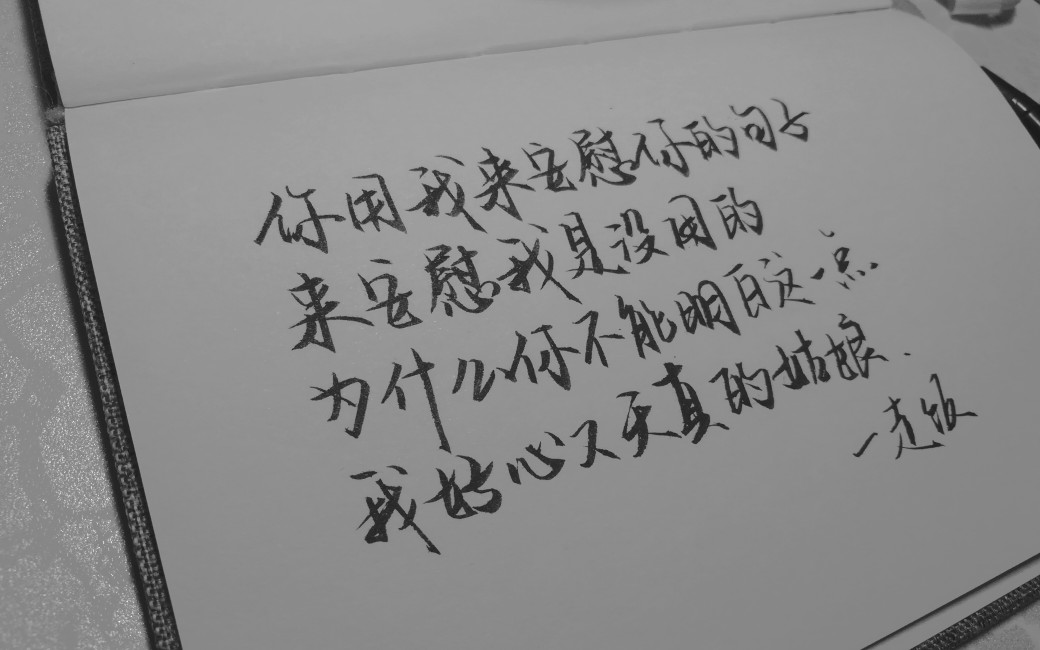 你用我来安慰你的句子
来安慰我是没用的
为什么你不能明白这一点
我好心又天真的姑娘.
一走饭